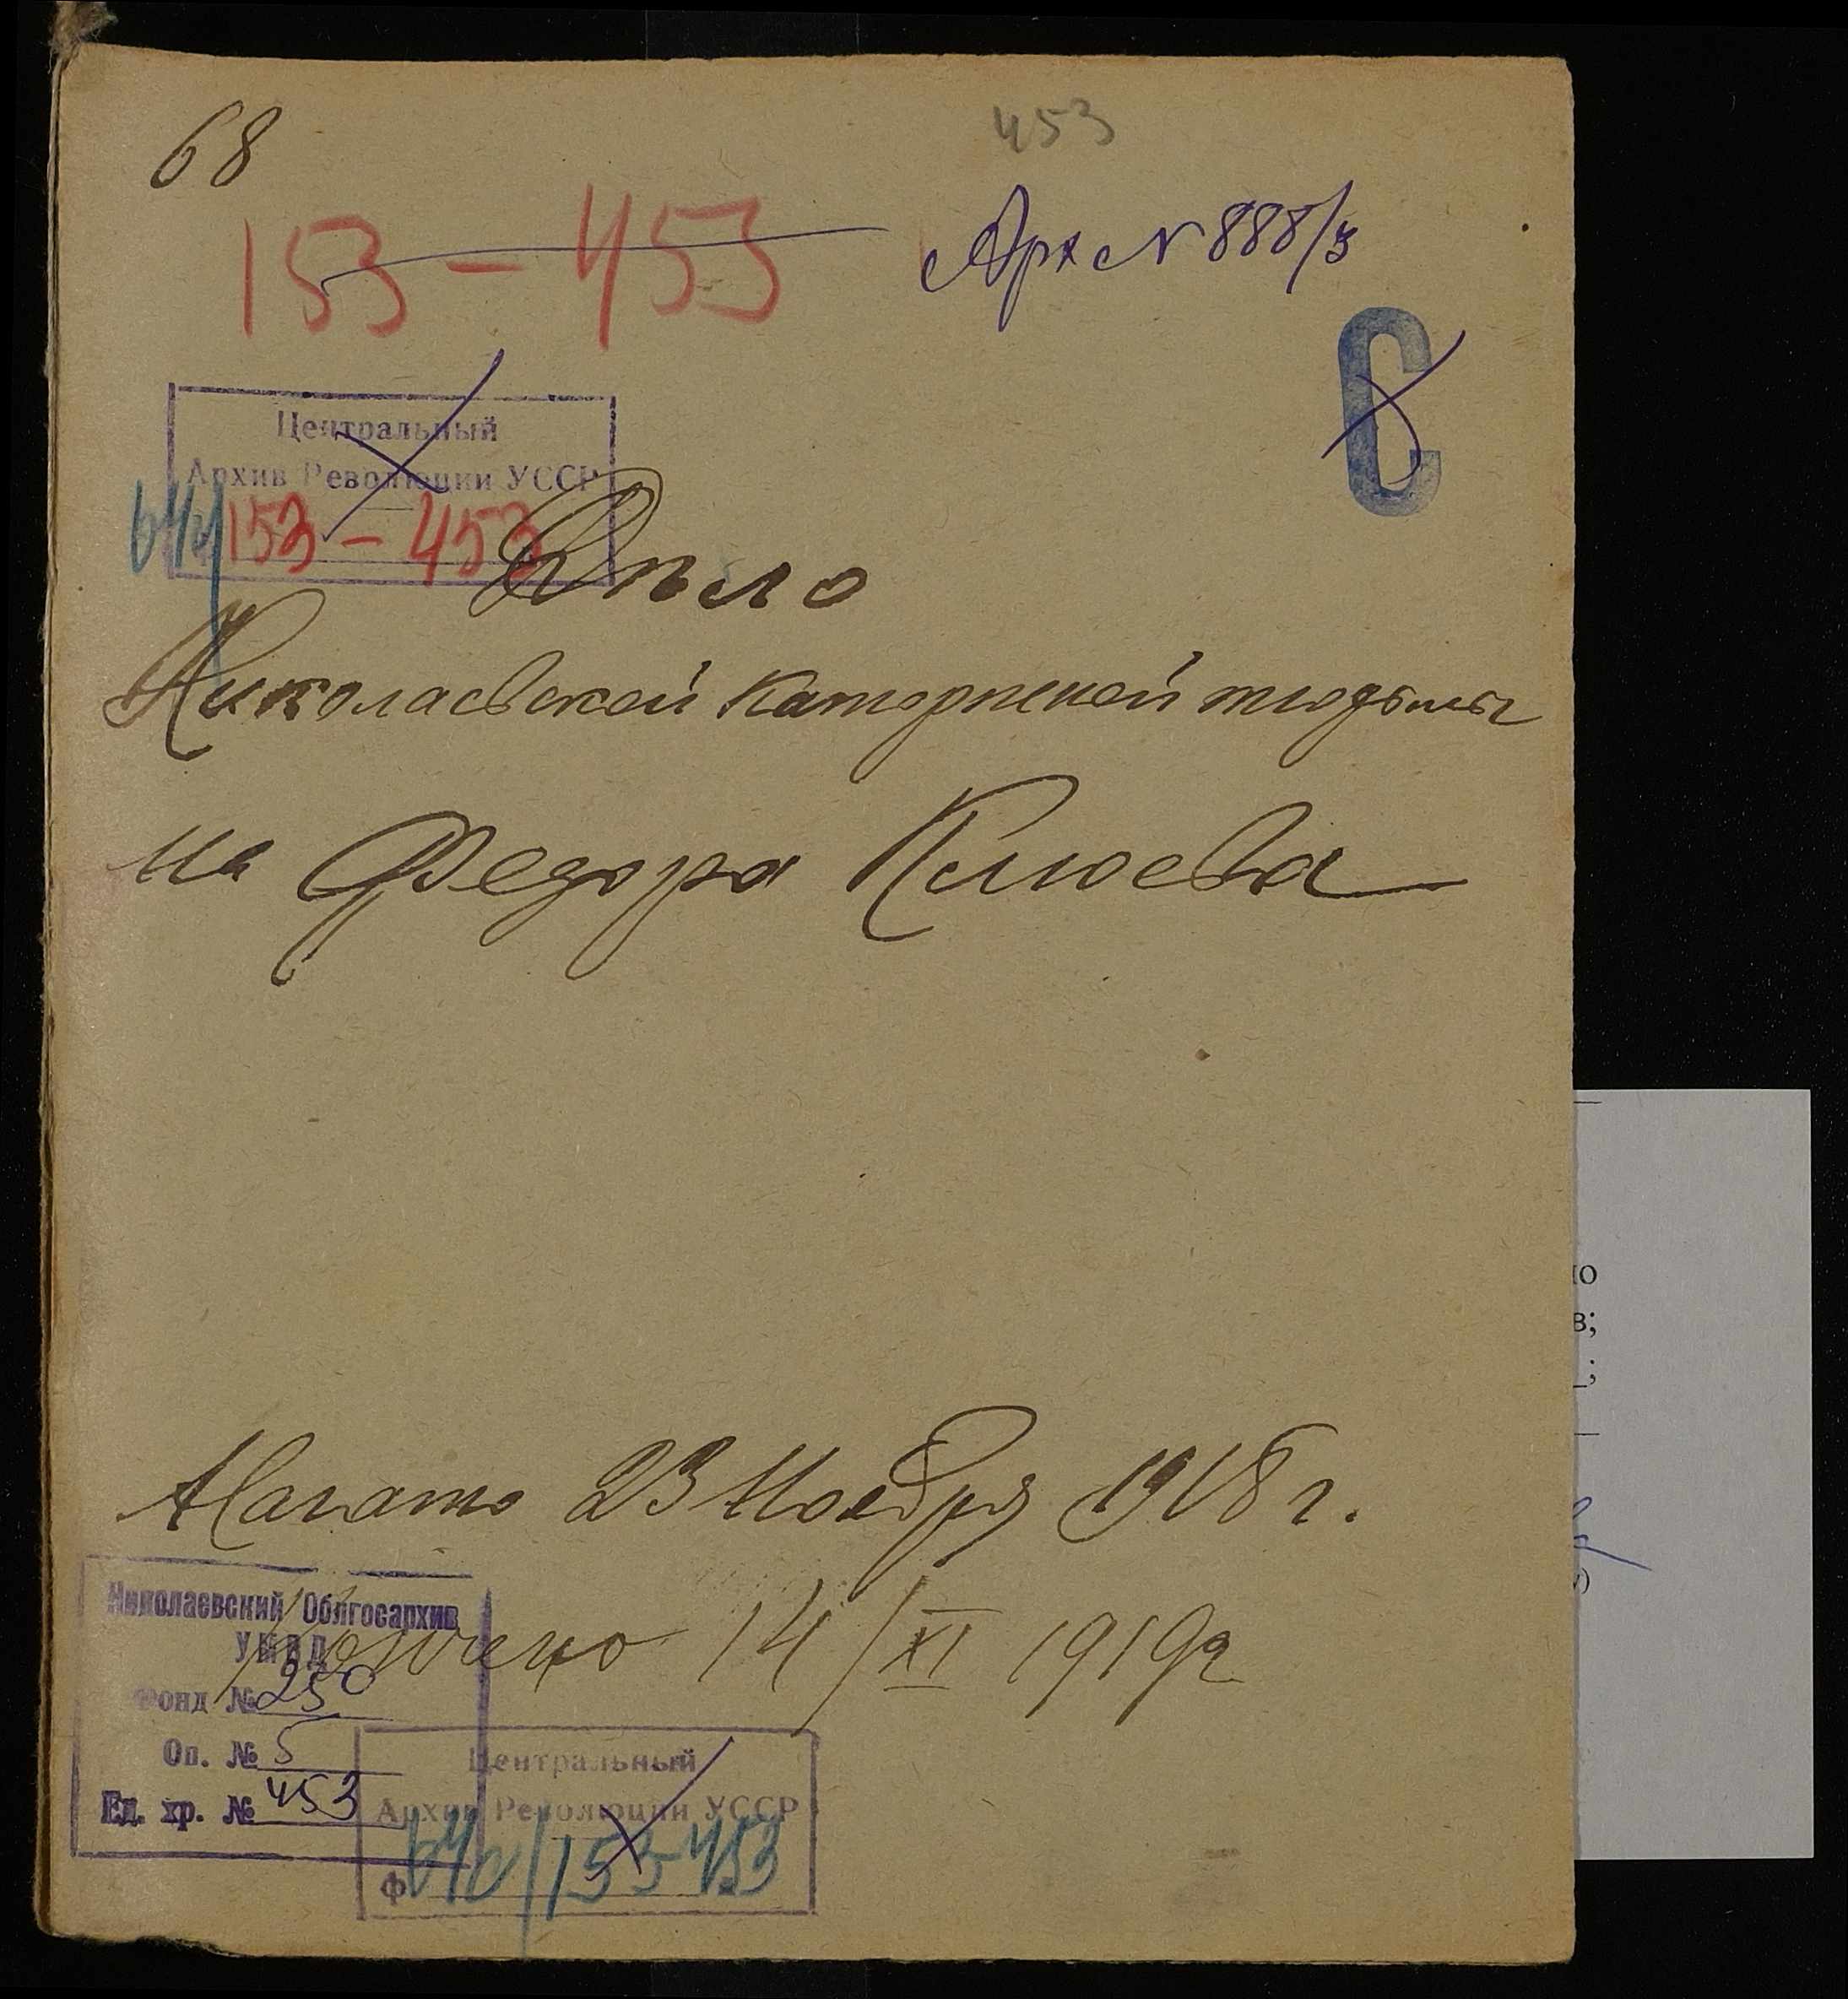 68
453
153 – 453
Арх № 888/3
С
Центральный
Архив Революции УССР
153 – 453
Дѣло
Николаевской каторжной тюрьмы
на Федора Клюева
Начато 23 Ноября 1918 г.
Кончено 14/XI 1919 г
Николаевский Облгосархив
УМВД
Фонд № 230
Оп. № 5
Ед. хр. № 453
Центральный
Архив Революции УССР
Ф 153-453